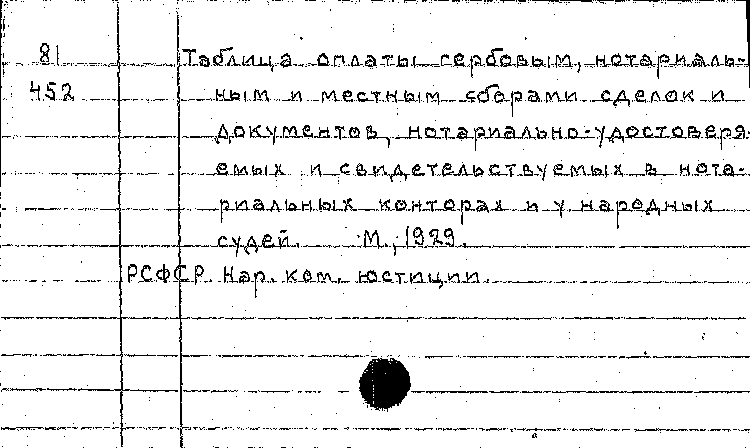 81 Таблица оплаты гербовым, нотариаль-
452 ным и местным сборами сделок и
документов, нотариально-удостоверя-
емых и свидетельствуемых в нота-
риальных конторах и у народных
судей. М., 1929.
РСФСР. Нар. ком. юстиции.